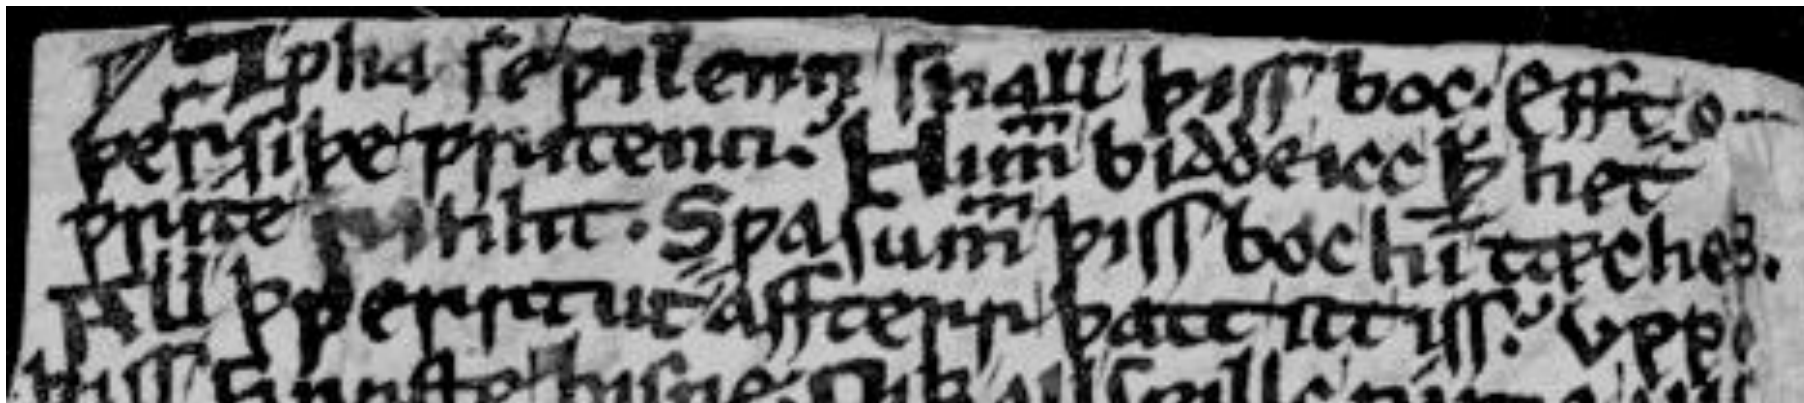 ⁊ Ƿha se ƿilenn shall þiss boc. efft o-
þerr siþe ƿritenn. Himm bidde icc þ̄ het
ƿrite rihht. Sƿa summ þiss boc himm tæcheþþ.
All þƿerrt ut affterr þatt itt iss. Uppo
þiss firrste bisne. Ƿiþþ all sƿillc rime all